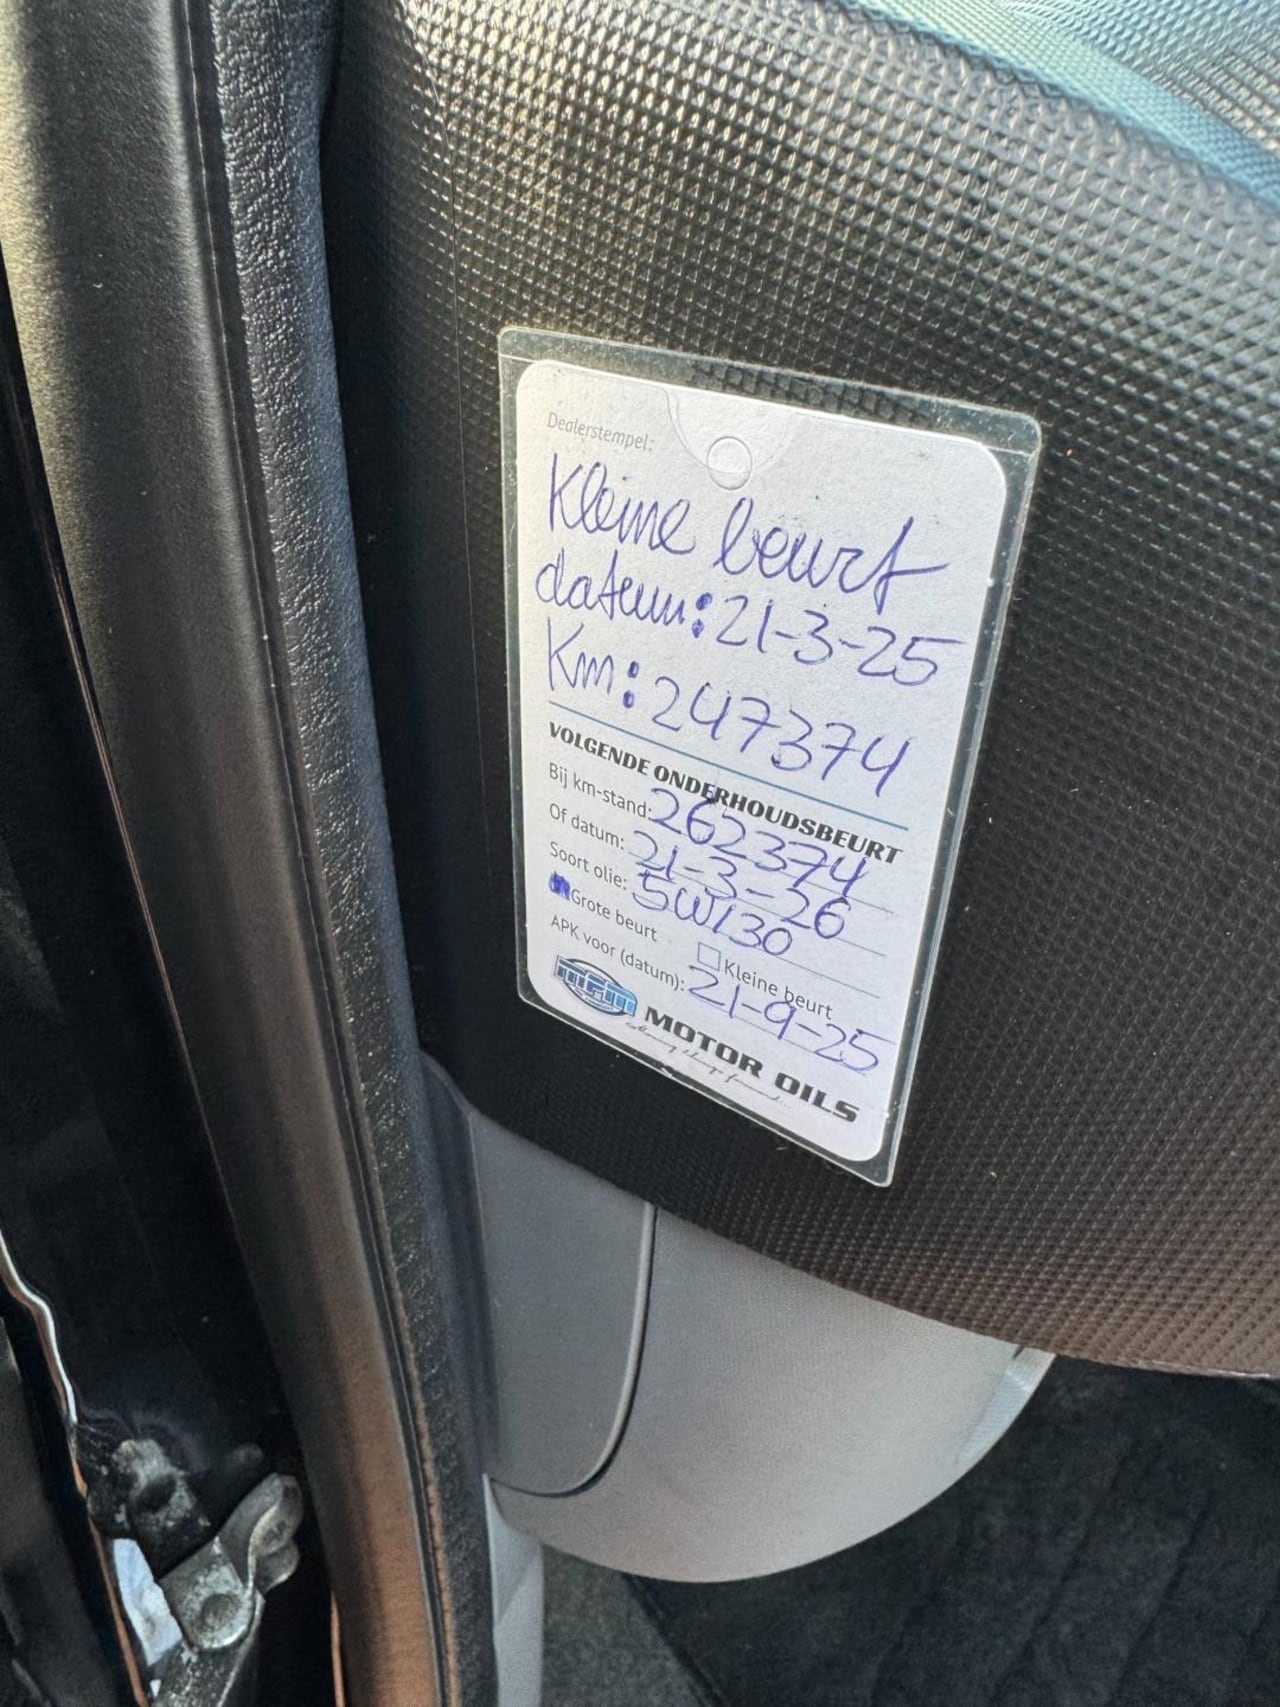 Dealerstempel:
Kleine beurt
datum: 21-3-25
Km: 247374
VOLGENDE ONDERHOUDSBEURT
Bij km-stand: 262374
Of datum: 21-3-26
Soort olie: 5W/30
Grote beurt Kleine beurt
APK voor (datum): 21-9-25
MPM MOTOR OILS